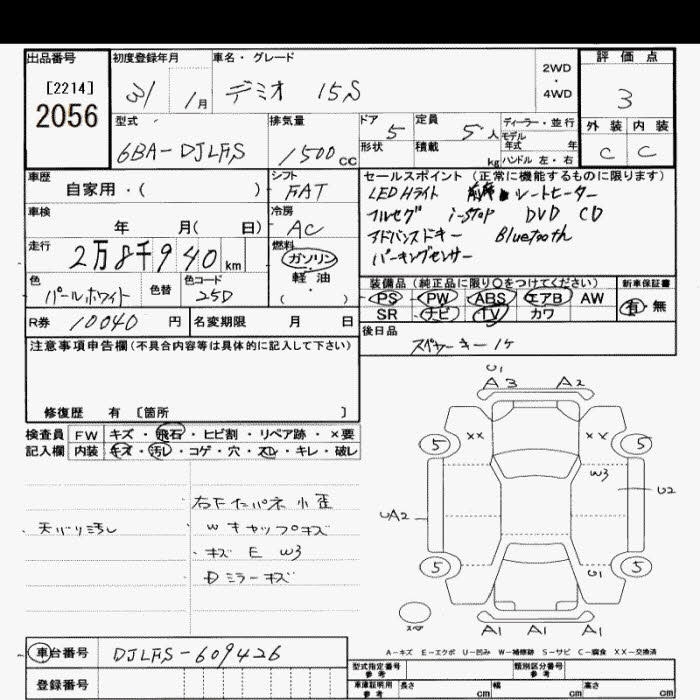 出品番号
[2214]
2056
初度登録年月
31 1月
車名・グレード
デミオ 15S
2WD
・
4WD
評価点
3
外装 内装
C C
型式
6BA-DJLFS
排気量
1500cc
ドア
5
形状
定員
5人
積載 kg
ディーラー・並行
モデル
年式 年
ハンドル 左・右
車歴
自家用・( )
シフト
FAT
車検
年 月( 日)
冷房
AC
走行
2万8千940km
燃料
ガソリン・
軽油・
( )
色
パールホワイト
色替
色コード
25D
R券 10040円
名変期限 月 日
セールスポイント (正常に機能するものに限ります)
LEDHライト 前席シートヒーター
フルセグ i-stop DVD CD
アドバンスドキー Bluetooth
パーキングセンサー
装備品 (純正品に限り○をつけてください)
PS PW ABS エアB AW
SR ナビ TV カワ
新車保証書
有・無
後日品
スペヤーキー1ヶ
注意事項申告欄(不具合内容等は具体的に記入して下さい)
修復歴 有 [箇所 ]
検査員
記入欄
FW キズ・飛石・ヒビ割・リペア跡・×要
内装 キズ・汚レ・コゲ・穴・スレ・キレ・破レ
天バリ汚レ
右F 小歪
W キャップキズ
キズ E W3
ミラーキズ
U1
A3 A2
5 XX XX 5
W3
U2
UA2
5 U1 5
スペア
A1 A1 A1
A-キズ E-エクボ U-凹み W-補修跡 S-サビ C-腐食 XX-交換済
車台番号 DJLFS-609426
登録番号
型式指定番号
参考
類別区分番号
参考
車庫証明用
参考
長さ cm 幅 cm 高さ cm